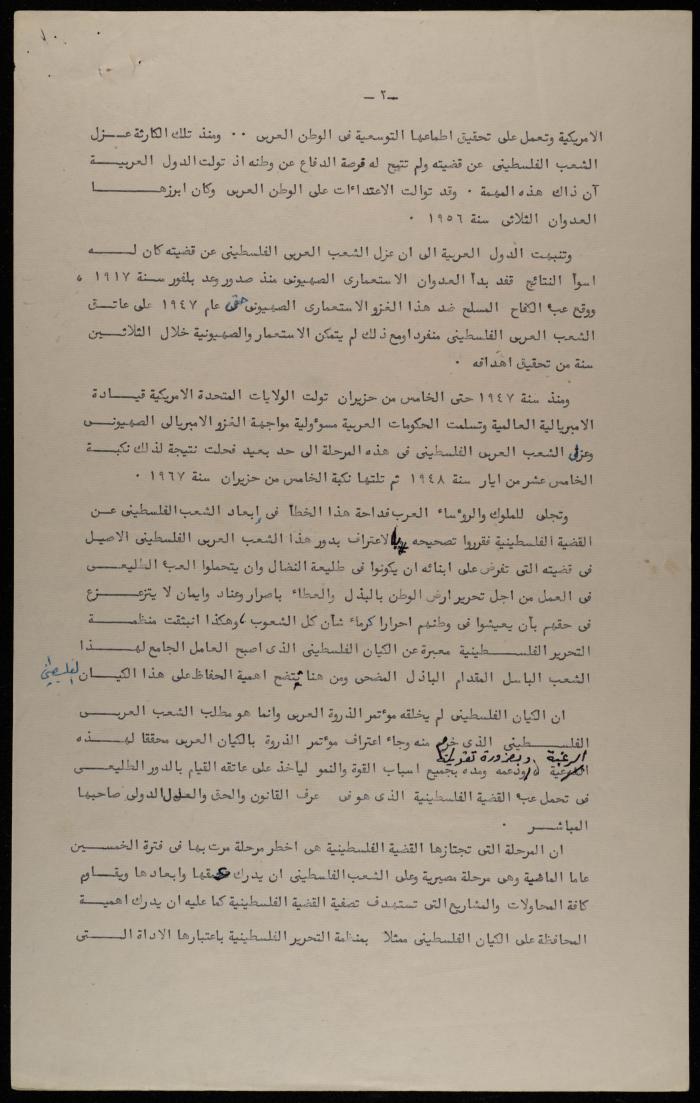 — ٢ —
الامريكية وتعمل على تحقيق اطماعها التوسعية فى الوطن العربى ٠٠ ومنذ تلك الكارثة عـزل
الشعب الفلسطينى عن قضيته ولم تتيح له فرصة الدفاع عن وطنه اذ تولت الدول العربيـة
آن ذاك هذه المهمة ٠ وقد توالت الاعتداءات على الوطن العربى وكان ابرزهـا
العدوان الثلاثى سنة ١٩٥٦ ٠
وتنبهت الدول العربية الى ان عزل الشعب العربى الفلسطينى عن قضيته كان لـه
اسوأ النتائج فقد بدأ العدوان الاستعمارى الصهيونى منذ صدور وعد بلفور سنـة ١٩١٧ ،
ووقع عبء الكفاح المسلح ضد هذا الغزو الاستعمارى الصهيونى حتى عام ١٩٤٧ على عاتـق
الشعب العربى الفلسطينى منفردا ومع ذلك لم يتمكن الاستعمار والصهيونية خلال الثلاثـين
سنة من تحقيق اهدافه ٠
ومنذ سنة ١٩٤٧ حتى الخامس من حزيران تولت الولايات المتحدة الامريكية قيـادة
الامبريالية العالمية وتسلمت الحكومات العربية مسؤولية مواجهة الغزو الامبريالى الصهيونـى
وعزل الشعب العربى الفلسطينى فى هذه المرحلة الى حد بعيد فحلت نتيجة لذلك نكبـة
الخامس عشر من ايار سنة ١٩٤٨ ثم تلتها نكبة الخامس من حزيران سنة ١٩٦٧ ٠
وتجلى للملوك والرؤساء العرب فداحة هذا الخطأ فى إبعاد الشعب الفلسطينى عـن
القضية الفلسطينية فقرروا تصحيحه بالاعتراف بدور هذا الشعب العربى الفلسطينى الاصيل
فى قضيته التى تفرض على ابنائه ان يكونوا فى طليعة النضال وان يتحملوا العبء الطليعـى
فى العمل من اجل تحرير ارض الوطن بالبذل والعطاء باصرار وعناد وايمان لا يتزعـزع
فى حقهم بأن يعيشوا فى وطنهم احرارا كرماء شأن كل الشعوب ، وهكذا انبثقت منظمـة
التحرير الفلسـطينية معبرة عن الكيان الفلسطينى الذى اصبح العامل الجامع لهـذا
الشعب الباسل المقدام الباذل المضحى ومن هنا تتضح اهمية الحفاظ على هذا الكيـان الفلسطيني
ان الكيان الفلسطينى لم يخلقه مؤتمر الذروة العربى وانما هو مطلب الشعب العربـى
الفلسـطينى الذى حرم منه وجاء اعتراف مؤتمر الذروة بالكيان العربى محققا لهـذه
الرغبة وبضرورة تقويته ودعمه ومده بجميع اسباب القوة والنمو لياخذ على عاتقه القيام بالدور الطليعـى
فى تحمل عبء القضية الفلسطينية الذى هو فى عرف القانون والحق والعدل الدولى صاحبها
المباشـر ٠
ان المرحلة التى تجتازها القضية الفلسطينية هى اخطر مرحلة مرت بها فى فترة الخمسـين
عاما الماضية وهى مرحلة مصيرية وعلى الشعب الفلسطينى ان يدرك عمقها وابعادها ويقـاوم
كافة المحاولات والمشاريع التى تستهدف تصفية القضية الفلسطينية كما عليه ان يدرك اهميـة
المحافظة على الكيان الفلسطينى ممثلا بمنظمة التحرير الفلسطينية باعتبارها الاداة الـتى